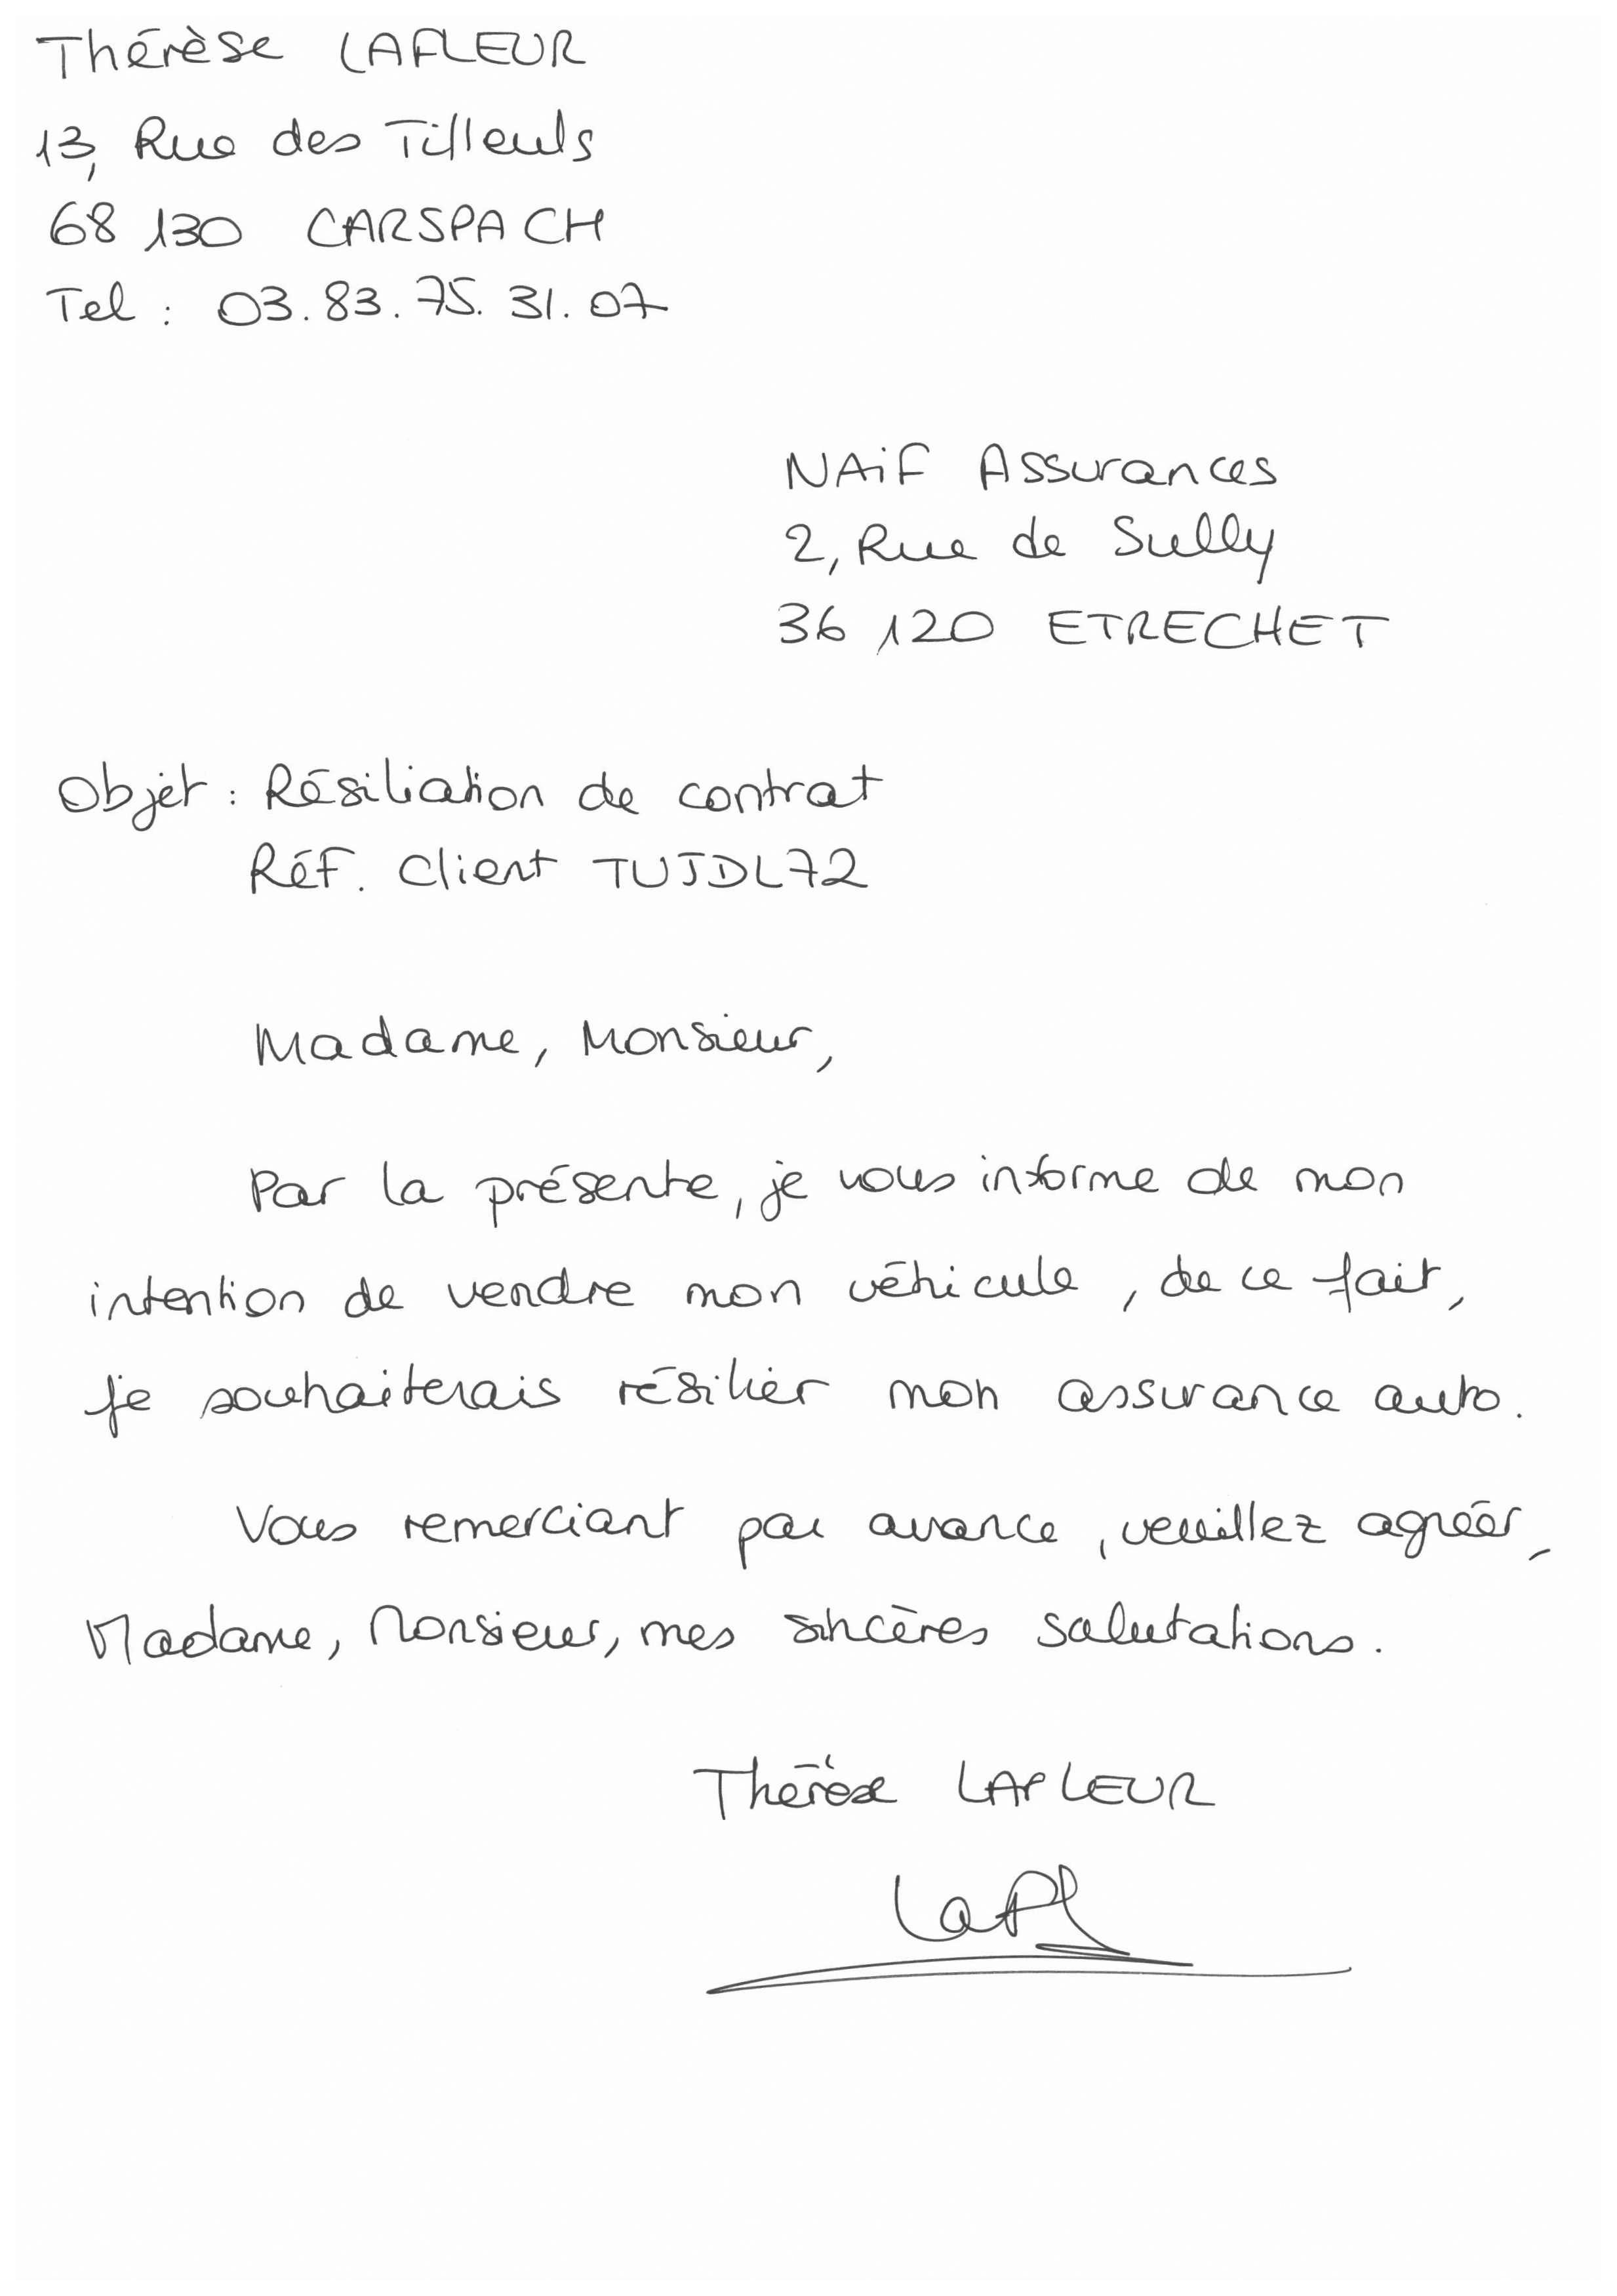 Thérèse LAFLEUR
13, Rue des Tilleuls
68 130 CARSPACH
Tel : 03.83.75.31.07
NAiF Assurances
2, Rue de Sully
36 120 ETRECHET
Objet : Résiliation de contrat
Réf. Client TUJDL72
Madame, Monsieur,
Par la présente, je vous informe de mon
intention de vendre mon véhicule, de ce fait,
je souhaiterais résilier mon assurance auto.
Vous remerciant par avance, veuillez agréer,
Madame, Monsieur, mes sincères salutations.
Thérèse LAFLEUR
Lafl